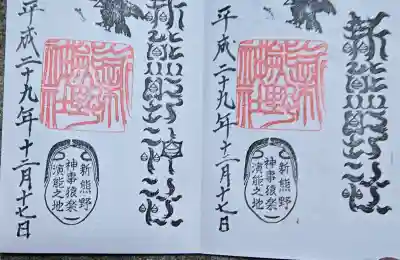 新熊野神社
新熊野
神事猿楽
演能之地
平成二十九年十二月十七日
新熊野神社
新熊野
神事猿楽
演能之地
平成二十九年十二月十七日